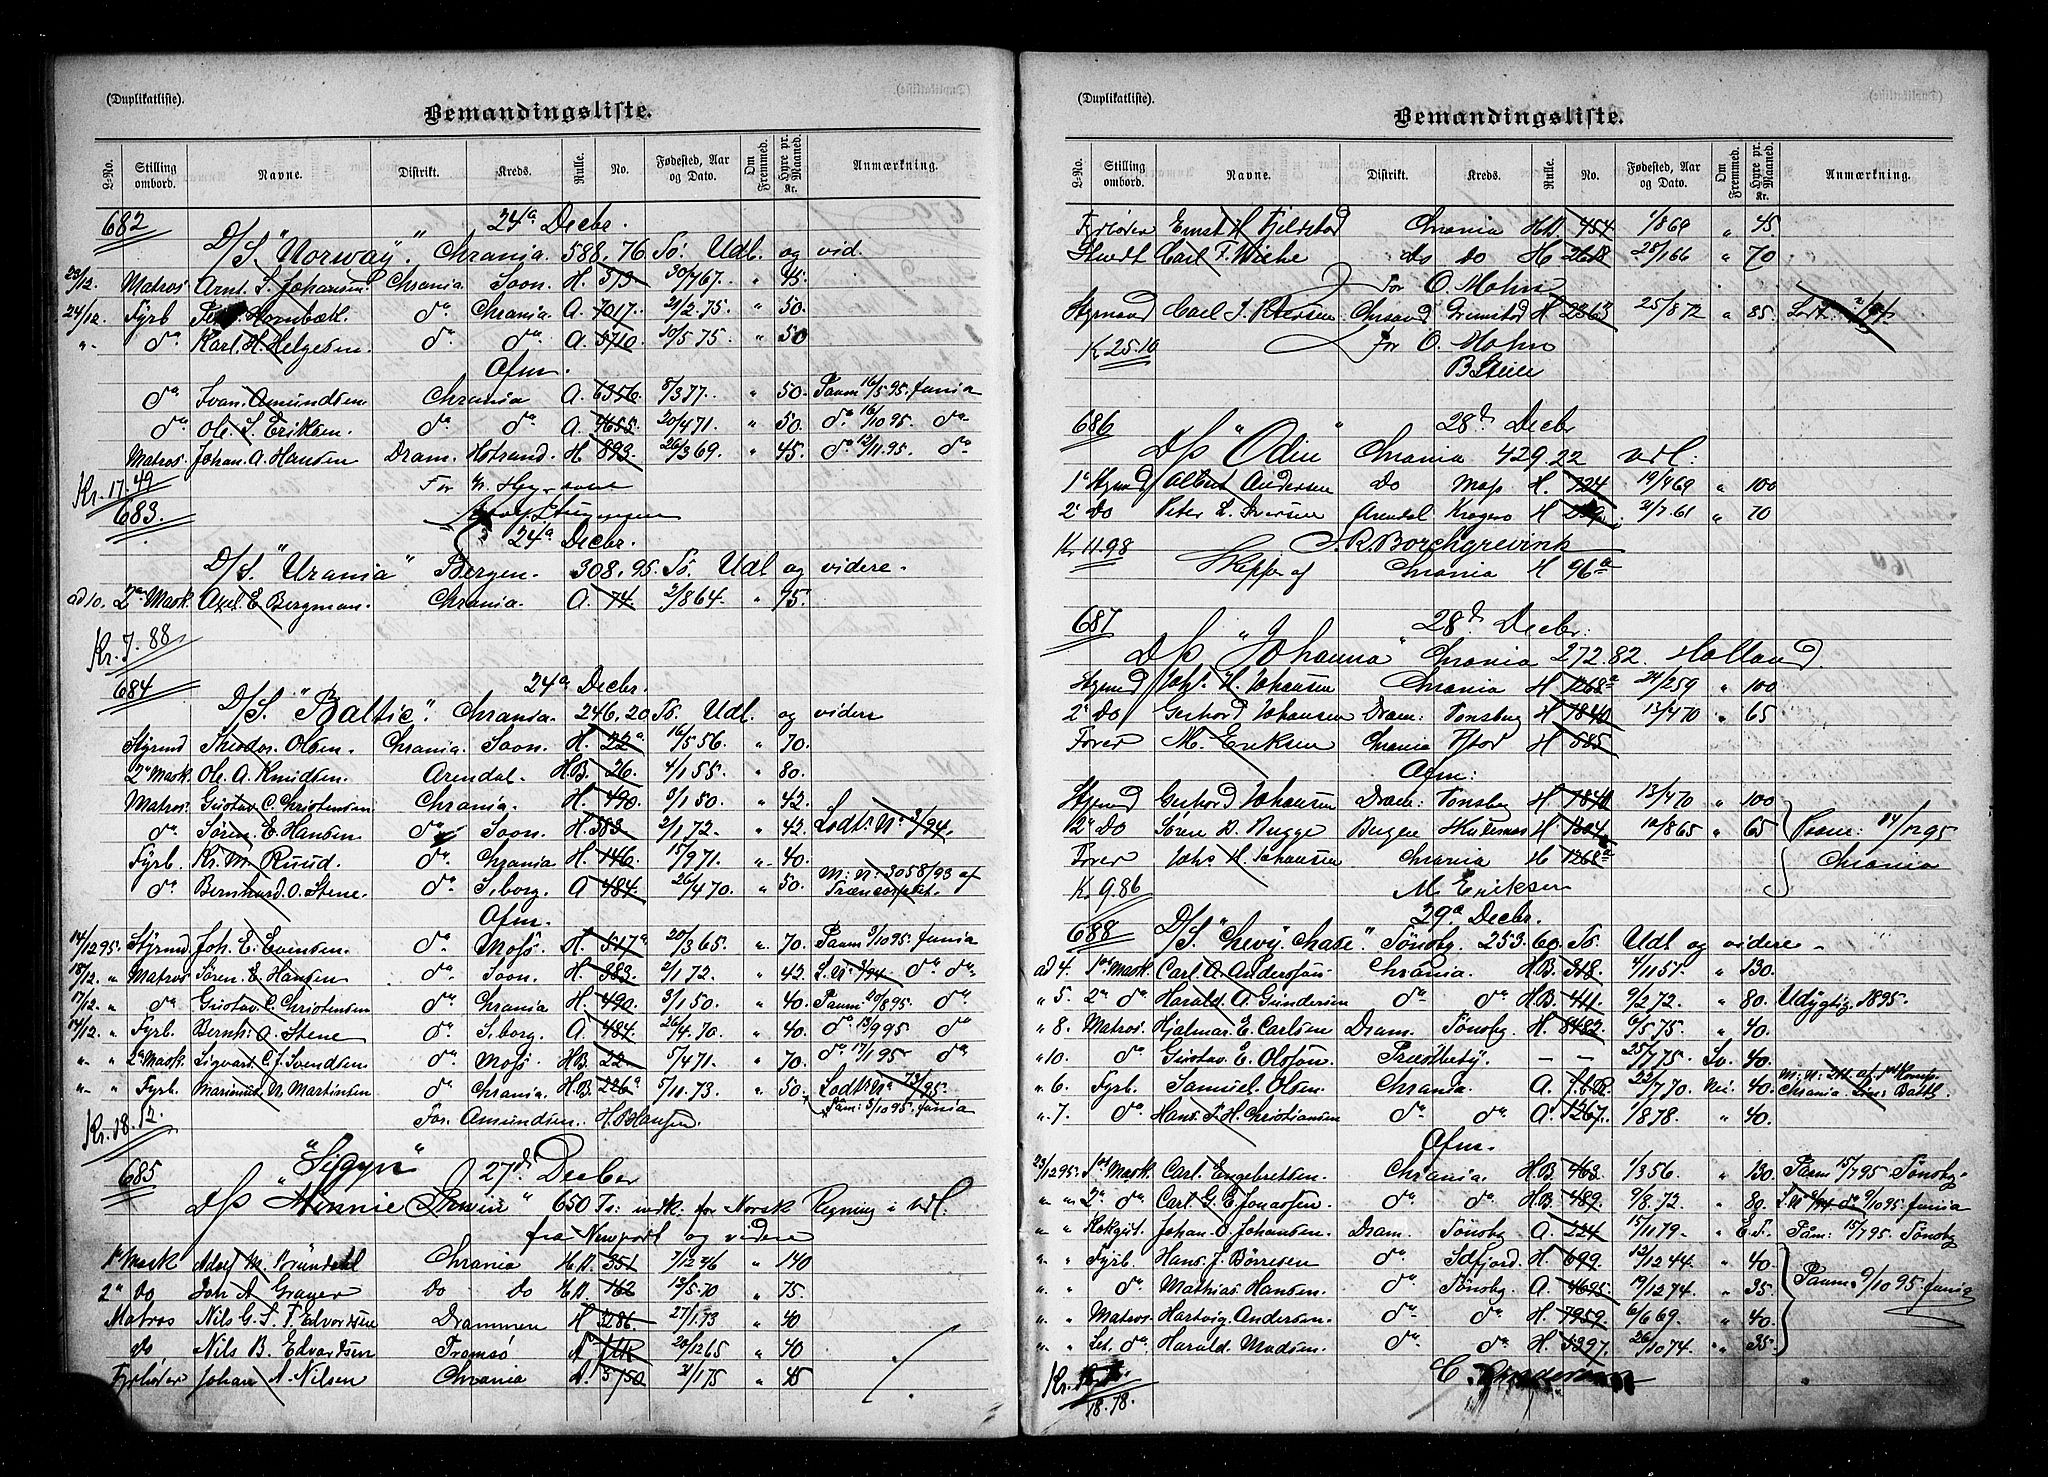 (Duplikatliste).
Bemandingsliste.
L-No. Stilling ombord. Navne. Distrikt. Kreds. Rulle. No. Fødested, Aar og Dato. Om Fremmed. Hyre pr. Maaned. Kr. Anmærkning.
682 24a Decbr.
D/S. "Norway". Chrania. 588,76 Ts. Udl. og vid.
23/12. Matros Arnt. S. Johansen. Chrania Soon. H. 573 30/467. " 45.
24/12. Fyrb Hornbæk. do. Chrania. A. 7017. 21/2.75. " 50.
" do Karl. H. Helgesen. do. do. A. 5710. 10/5.75. " 50
Afm.
do. Ivan. Amundsen Chrania A. 6356. 8/377. " 50. Paam 16/595. Junia
do Ole. S. Eriksen. do. do. A. 4655. 20/471. " 50. do. 16/1095. do
Matros. Johan. A. Hansen Dram. Hstrand. H. 893. 26/369. " 45. do 12/1195. do
Kr. 17.49 For
683. 24a Decbr.
D/S. "Urania" Bergen. 308,95. Ts. Udl og videre.
ad 10. 2den Mask. Axel. E. Bergman. Chrania. A. 74. 2/864. " 75.
Kr. 7.88
684 24a Decbr.
D/S. "Baltic". Chrania. 246,20 Ts. Udl. og videre
Styrmd Theodor. Olsen. Chrania. Soon. H. 22a 16/556. " 70.
2n Mask. Ole. A. Knudsen. Arendal. H.B. 26. 4/155. " 80.
Matros. Gustav. C. Christensen Chrania. H. 490. 3/150. " 42.
do. Søren. E. Hansen. do Soon. H. 383. 2/172. " 42. Lodts. No 3/94.
Fyrb. Kr. M. Ruud. do. Chrania H. 146. 15/971. " 40.
do. Bernhard. O. Stene. do. S.borg. A 484. 26/470. " 50. M: N: 3058/93 af
Afm.
14/1295. Styrmd. Joh. E. Evensen. do. Moss. H. 517a 20/365. " 70. Paam 3/1095. Junia
18/12. " Matros Søren. E. Hansen do. Soon. H. 383. 2/172. " 42. do do.
17/12. " do Gustav. C. Christensen do. Chrania H. 490. 3/150. " 40. Paam 20/895. do.
14/12. " Fyrb. Bernh. O. Stene do. S.borg. A. 484. 26/4.70. " 40. do. 13/995 do
" " 2n Mask. Sigvart. C. J. Svendsen do. Moss. H.B. 22. 5/471. " 70. do 17/195. do
" " Fyrb. Marinius. N. Martinsen do. Chrania. H.B. 226a 5/11.73. " 50. Lodts. No 73/95.
Paam: 3/1095. Junia
Kr. 18.12 For. Amundsen. H. B. Hansen.
"Sigyn"
685 27d Decber
D/S "Minnie Irwin" 650 Ts: indk. for Norsk Regning i Udl.
fra Newport og videre
1e Mask Adolf M. Brundahl Chrania H.B. 351 7/1246 " 140
2n Do Jon A. Granger Do Do H.B. 162 13/5.70 " 75.
Matros Nils G. S. F. Edvardsen Drammen H 3286 27/1.73 " 40
do Nils B. Edvardsen Tromsø A 20/1265 " 40
Fyrbøder Johan A. Nilsen Chrania A. 5750 21/175 " 45
(Duplikatliste).
Bemandingsliste.
L-No. Stilling ombord. Navne. Distrikt. Kreds. Rulle. No. Fødested, Aar og Dato. Om Fremmed. Hyre pr. Maaned. Kr. Anmærkning.
Fyrbøder Ernst H Fjeldstad Chrania H.B. 454 1/869 " 45
Stuedt Carl F. Wiche do do H 2618 28/166 " 70
For O. Mohn
Styrmand Carl J. Petersen Chrsand Grimstad H 2363 25/872 " 85.
Kr. 25.10 For O. Mohn
686 28d Decbr
D/S "Odin" Chrania 429.22 Udl:
1e Styrmd Albert Andersen Do Moss H. 724 19/969 " 100
2n Do Peter L. Iversen Arendal Kragerø H 21/7.61 " 70
Kr. 11.98 J. R. Borchgrevink
Skipper af Chrania H 96a
687 28d Decbr:
D/S "Johanna" Chrania 272.82. Holland.
Styrmd Johs. H. Johansen Chrania H 1268a 24/259 " 100
2n Do Gerhard Johansen Dram: Tønsberg H 7840 13/470 " 65
Fører M. Eriksen Chrania H 585
Afm:
Styrmd Gerhard Johansen Dram: Tønsberg H 7840 13/470 " 100
2n Do Søren B. Bugge Bergen H 1304 10/865 " 65 Paam: 14/1295
Fører Johs H. Johansen Chrania H 1268a Chrania
Kr. 9.86 M. Eriksen
29a Decbr.
688 D/S. "Chevy Chase". Tønsbg. 253.60. Ts. Udl og videre
ad 4. 1ste Mask. Carl. A. Andersson Chrania. H.B. 318. 4/1151. " 130.
" 5. 2n do. Harald. A. Gundersen do do. H.B. 411. 9/272. " 80. Udygtig. 1895.
" 8. Matros. Hjalmar. E. Carlsen Dram. Tønsbg. H. 8482. 6/575. " 40.
" 10. do. Gustav. E. Olsson. — — 25/775. Sv. 40.
" 6. Fyrb. Samuel. Olsen. Chrania. A. 22/770. Nei. 40.
" 7. do. Hans. F. H. Christiansen do. do. A. 1267. 1/878. " 40.
Afm.
23/1295. 1ste Mask. Carl. Engebretsen. Chrania. H.B. 463. 1/356. " 130. Paam 15/795. Tønsbg.
" " 2n do. Carl. G. E. Jonassen. do. do. H.B. 489. 9/8.72. " 80. 9/1095. Junia
" " Kokgut. Johan. O. Johansen. Dram. Tønsbg. A. 224. 15/1179. " E.F. Paam: 15/795. Tønsbg
" " Fyrb. Hans. J. Børresen do. Sdfjord. H. 699. 12/1244. " 40.
" " do. Mathias. Hansen. do. Tønsbg. A. 4695. 19/1274. " 35. Paam: 9/1095. Junia
" " Matros. Hartvig. Andersen. do. do. H. 7959. 6/669. " 40.
" " Let. do. Harald. Madsen. do. do. H. 5397. 26/1074. " 35.
18.78.